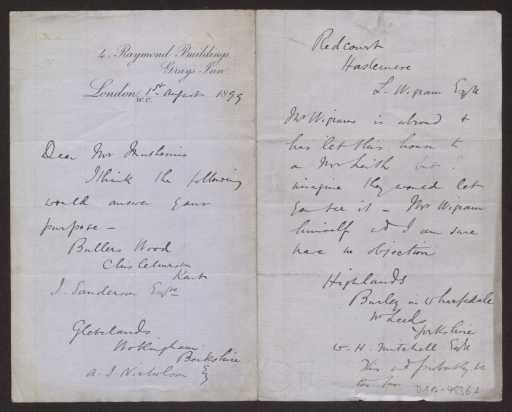 4, Raymond Buildings
Grays Inn
London, 1st August 1899
W.C.
Dear Mr Muthesius
I think the following
would answer your
purpose —
Bullers Wood
Chislehurst
Kent
J. Sanderson Esqre
Glebelands
Wokingham
Berkshire
A. J. Nicholson Esq
Redcourt
Haslemere
L. Wigram Esqre
Mr Wigram is abroad &
has let this house to
a Mr Leith but I
imagine they would let
you see it — Mr Wigram
himself wd I am sure
have no objection
Highlands
Burley in Wharfedale
Nr Leeds
Yorkshire
W. H. Mitchell Esqre
This wd probably be
too far